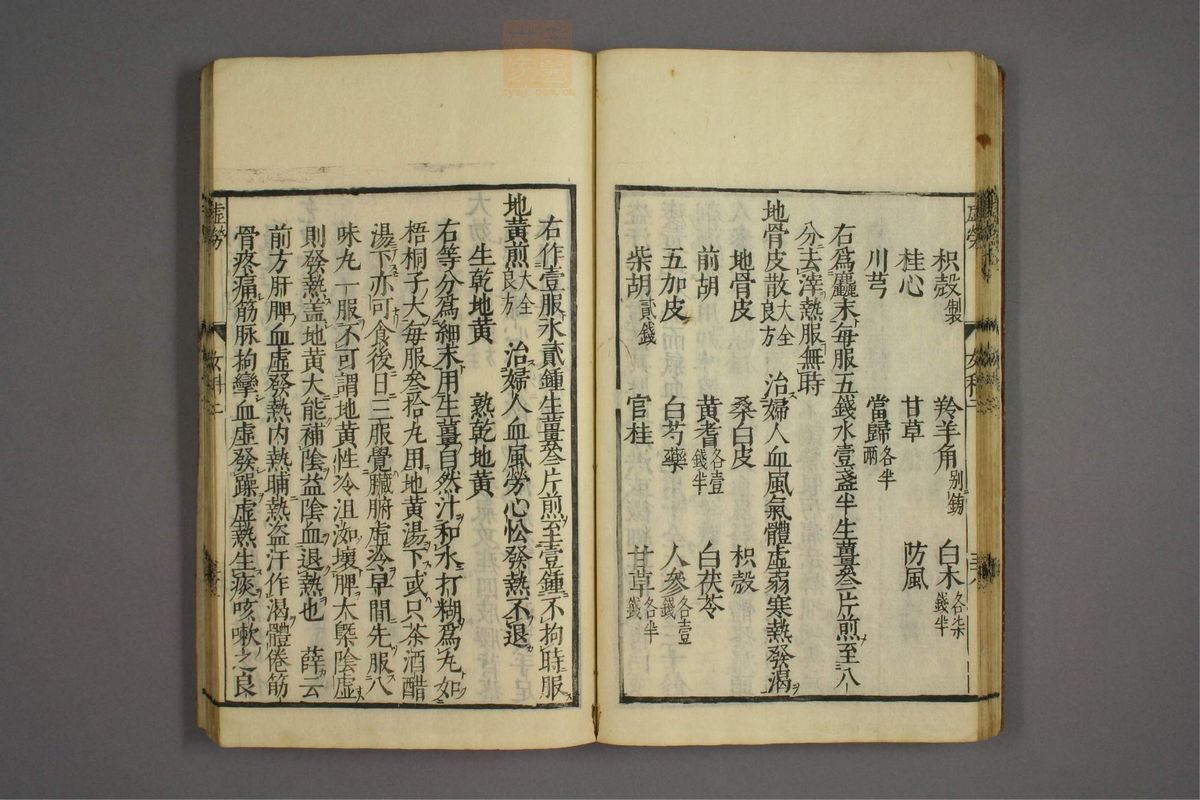 枳殼製 羚羊角別鎊 白朮各柒錢半
桂心 甘草 防風
川芎 當歸各半兩
右爲麤末每服五錢水壹盞半生薑叄片煎至八
分去滓熱服無時
地骨皮散大全良方 治婦人血風氣體虛弱寒熱發渴
地骨皮 桑白皮 枳殼
前胡 黃耆各壹錢半 白茯苓
五加皮 白芍藥 人參各壹錢
柴胡貳錢 官桂 甘草各半錢
虛勞 女科二
右作壹服水貳鍾生薑叄片煎至壹鍾不拘時服
地黃煎大全良方 治婦人血風勞心忪發熱不退
生乾地黃 熟乾地黃
右等分爲細末用生薑自然汁和水打糊爲丸如
梧桐子大每服叄拾丸用地黃湯下或只茶酒醋
湯下亦可食後日三服覺臟腑虛冷早間先服八
味丸一服不可謂地黃性冷沮洳壞脾太槩陰虛
則發熱盖地黃大能補陰益陰血退熱也 薛云
前方肝脾血虛發熱内熱晡熱盜汗作渴體倦筋
骨疼痛筋脉拘攣血虛發躁虛熱生痰咳嗽之良
虛勞 女科二